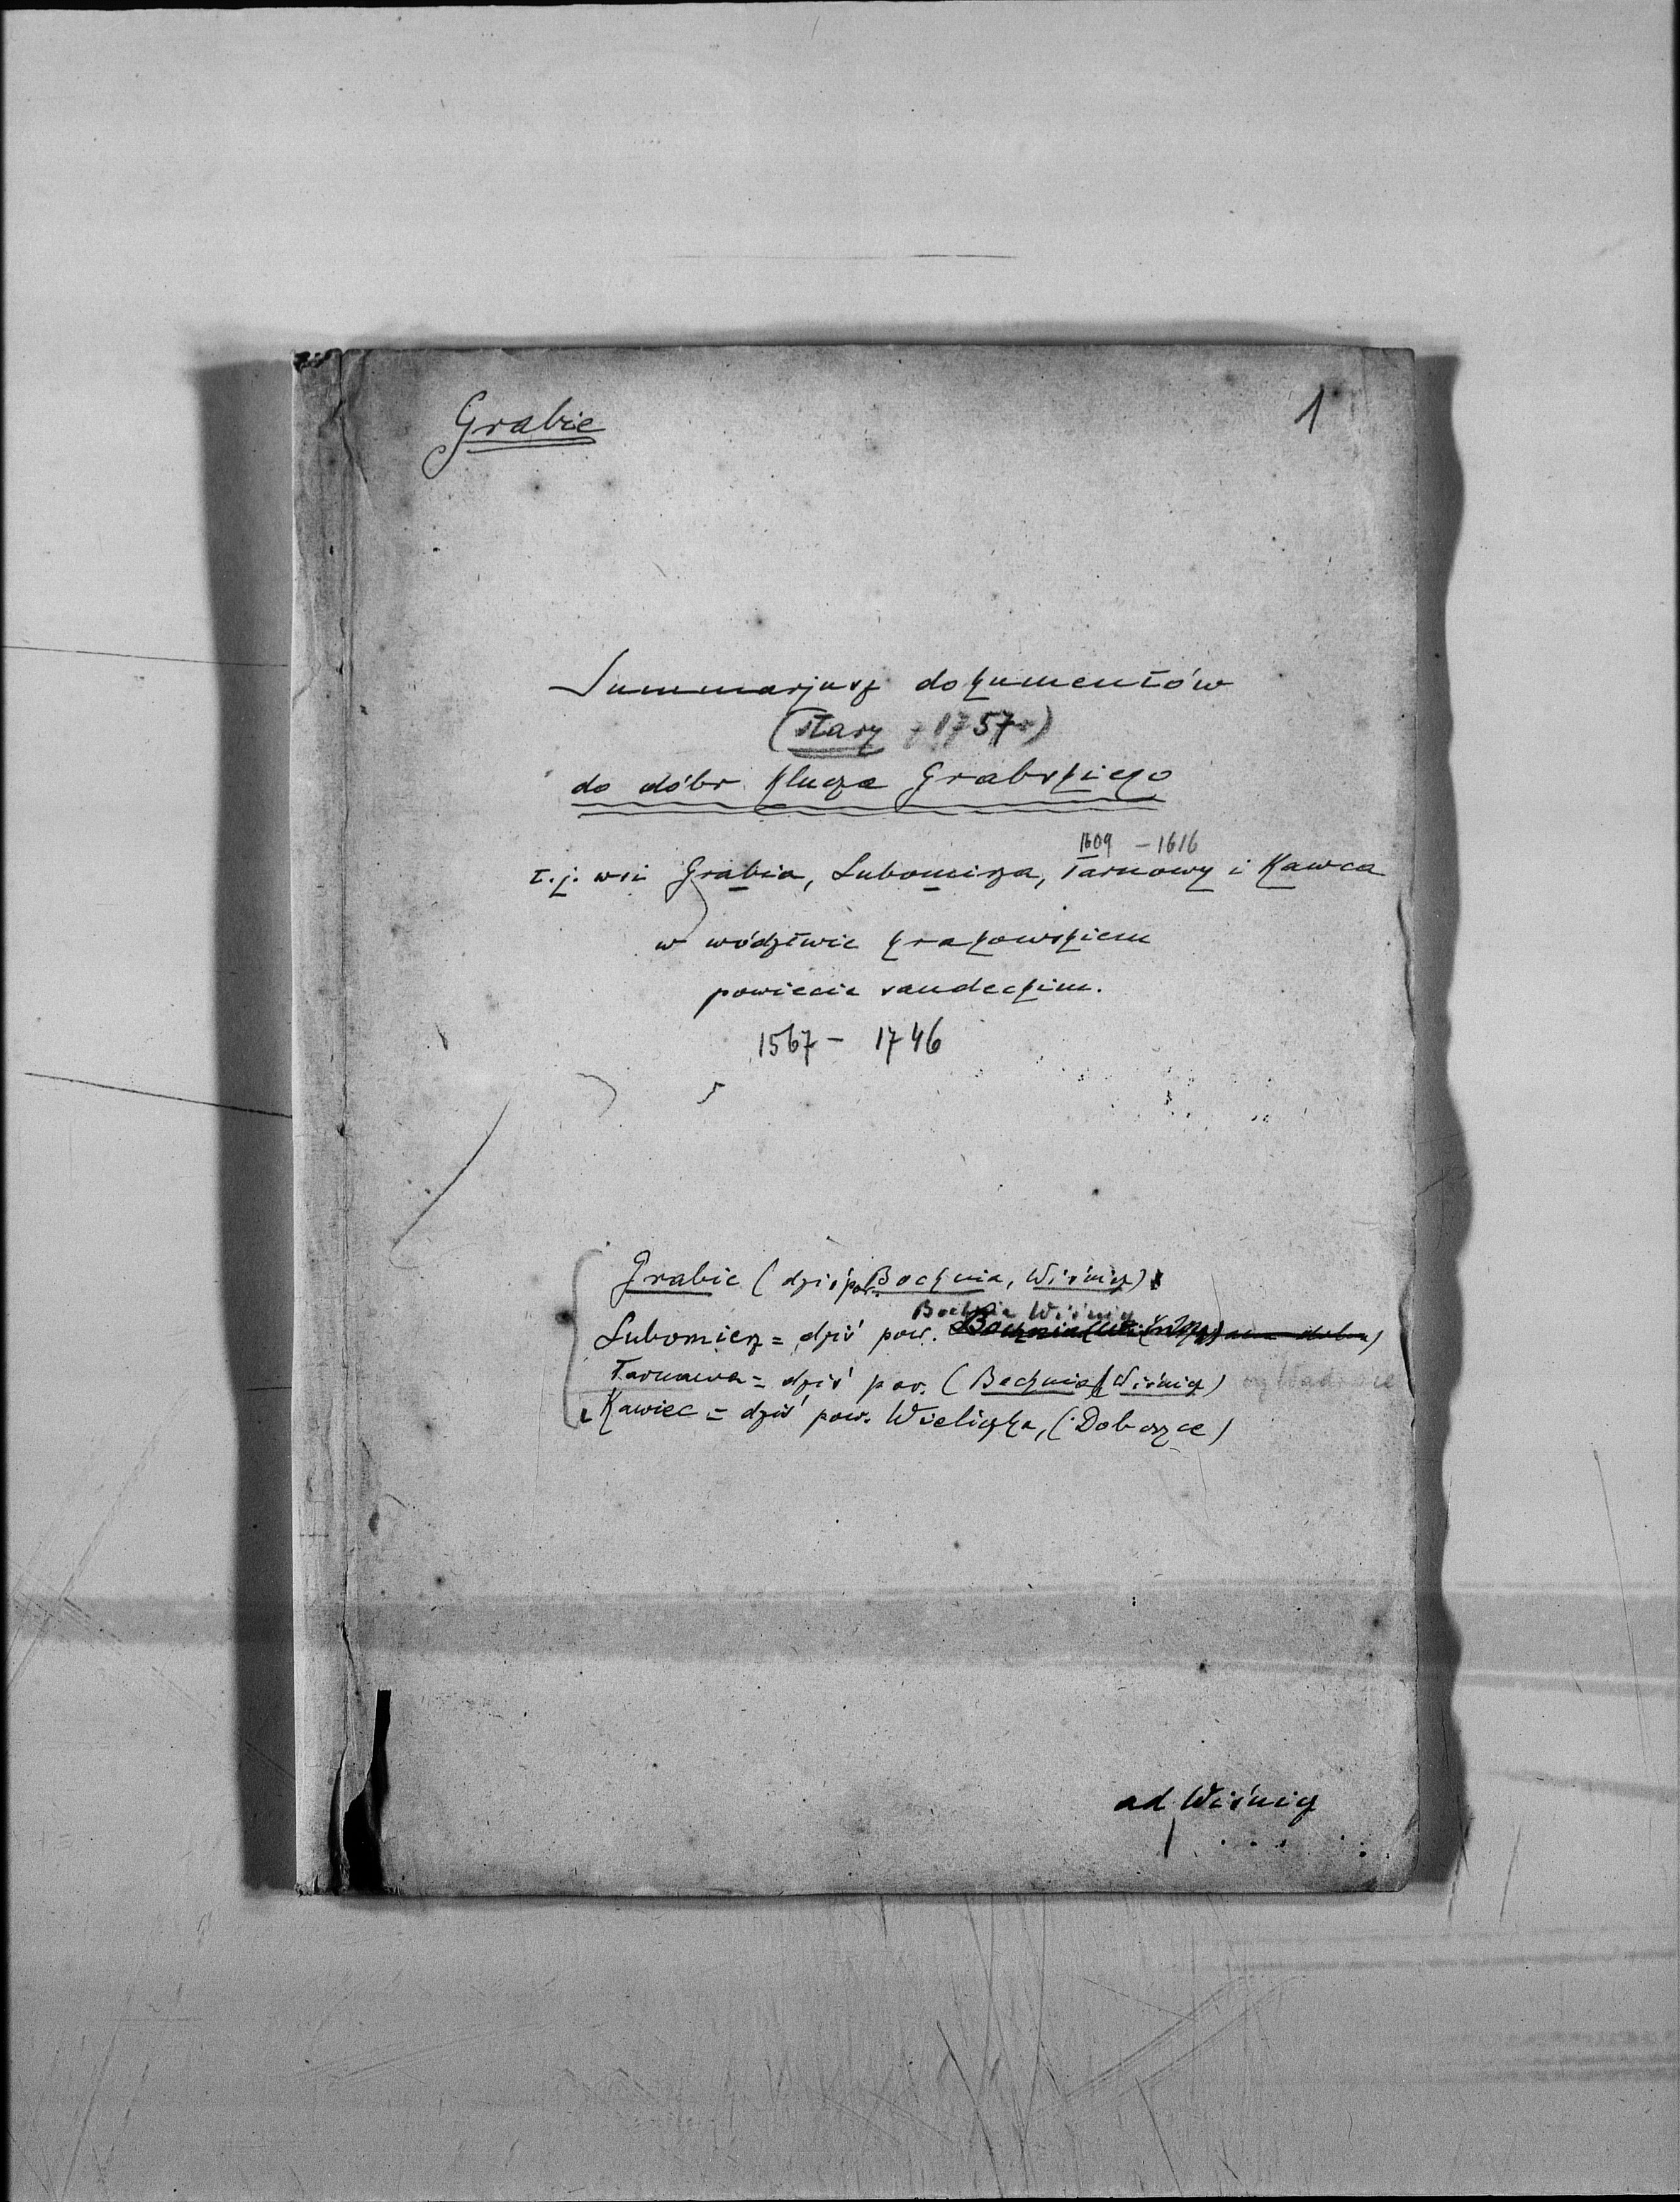 Grabie
1
Summarjusz dokumentów
(stary z 1757r)
do dóbr klucza Grabskiego
1609 - 1616
t.j. wsi Grabia, Lubomirza, Tarnowy i Kawca
w wództwie krakowskiem
powiecie sandeckim.
1567 - 1746
Grabie (dziś pow. Bochnia, Wiśnicz)
Bochnia Wiśnicz
Lubomierz = dziś pow.
Tarnawa = dziś pow. (Bochnia, Wiśnicz)
i Kawiec = dziś pow. Wieliczka, (Dobczyce)
ad Wiśnicz